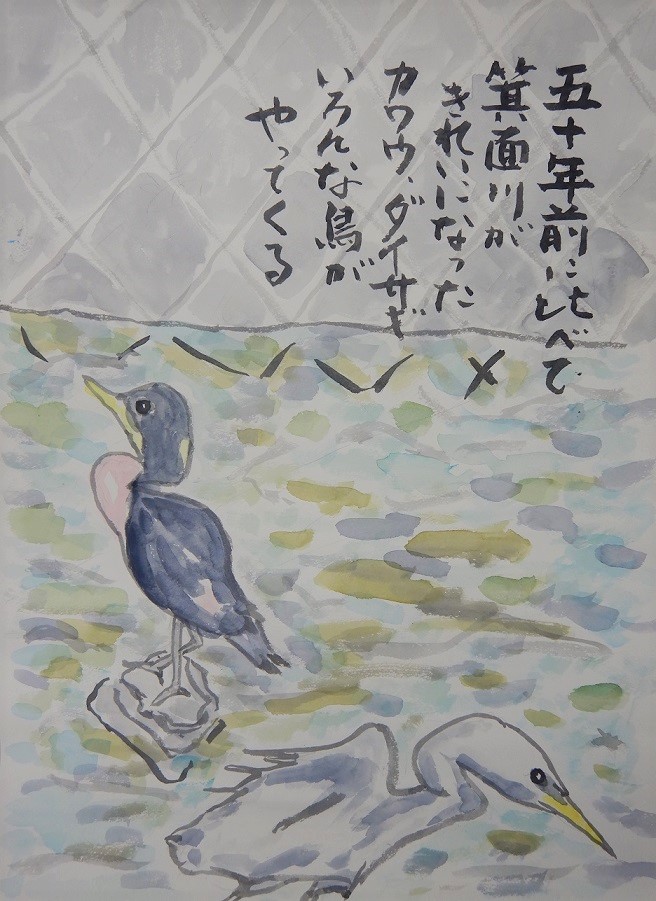 五十年前に比べて
箕面川が
きれいになった
カワウ、ダイサギ
いろんな鳥が
やってくる